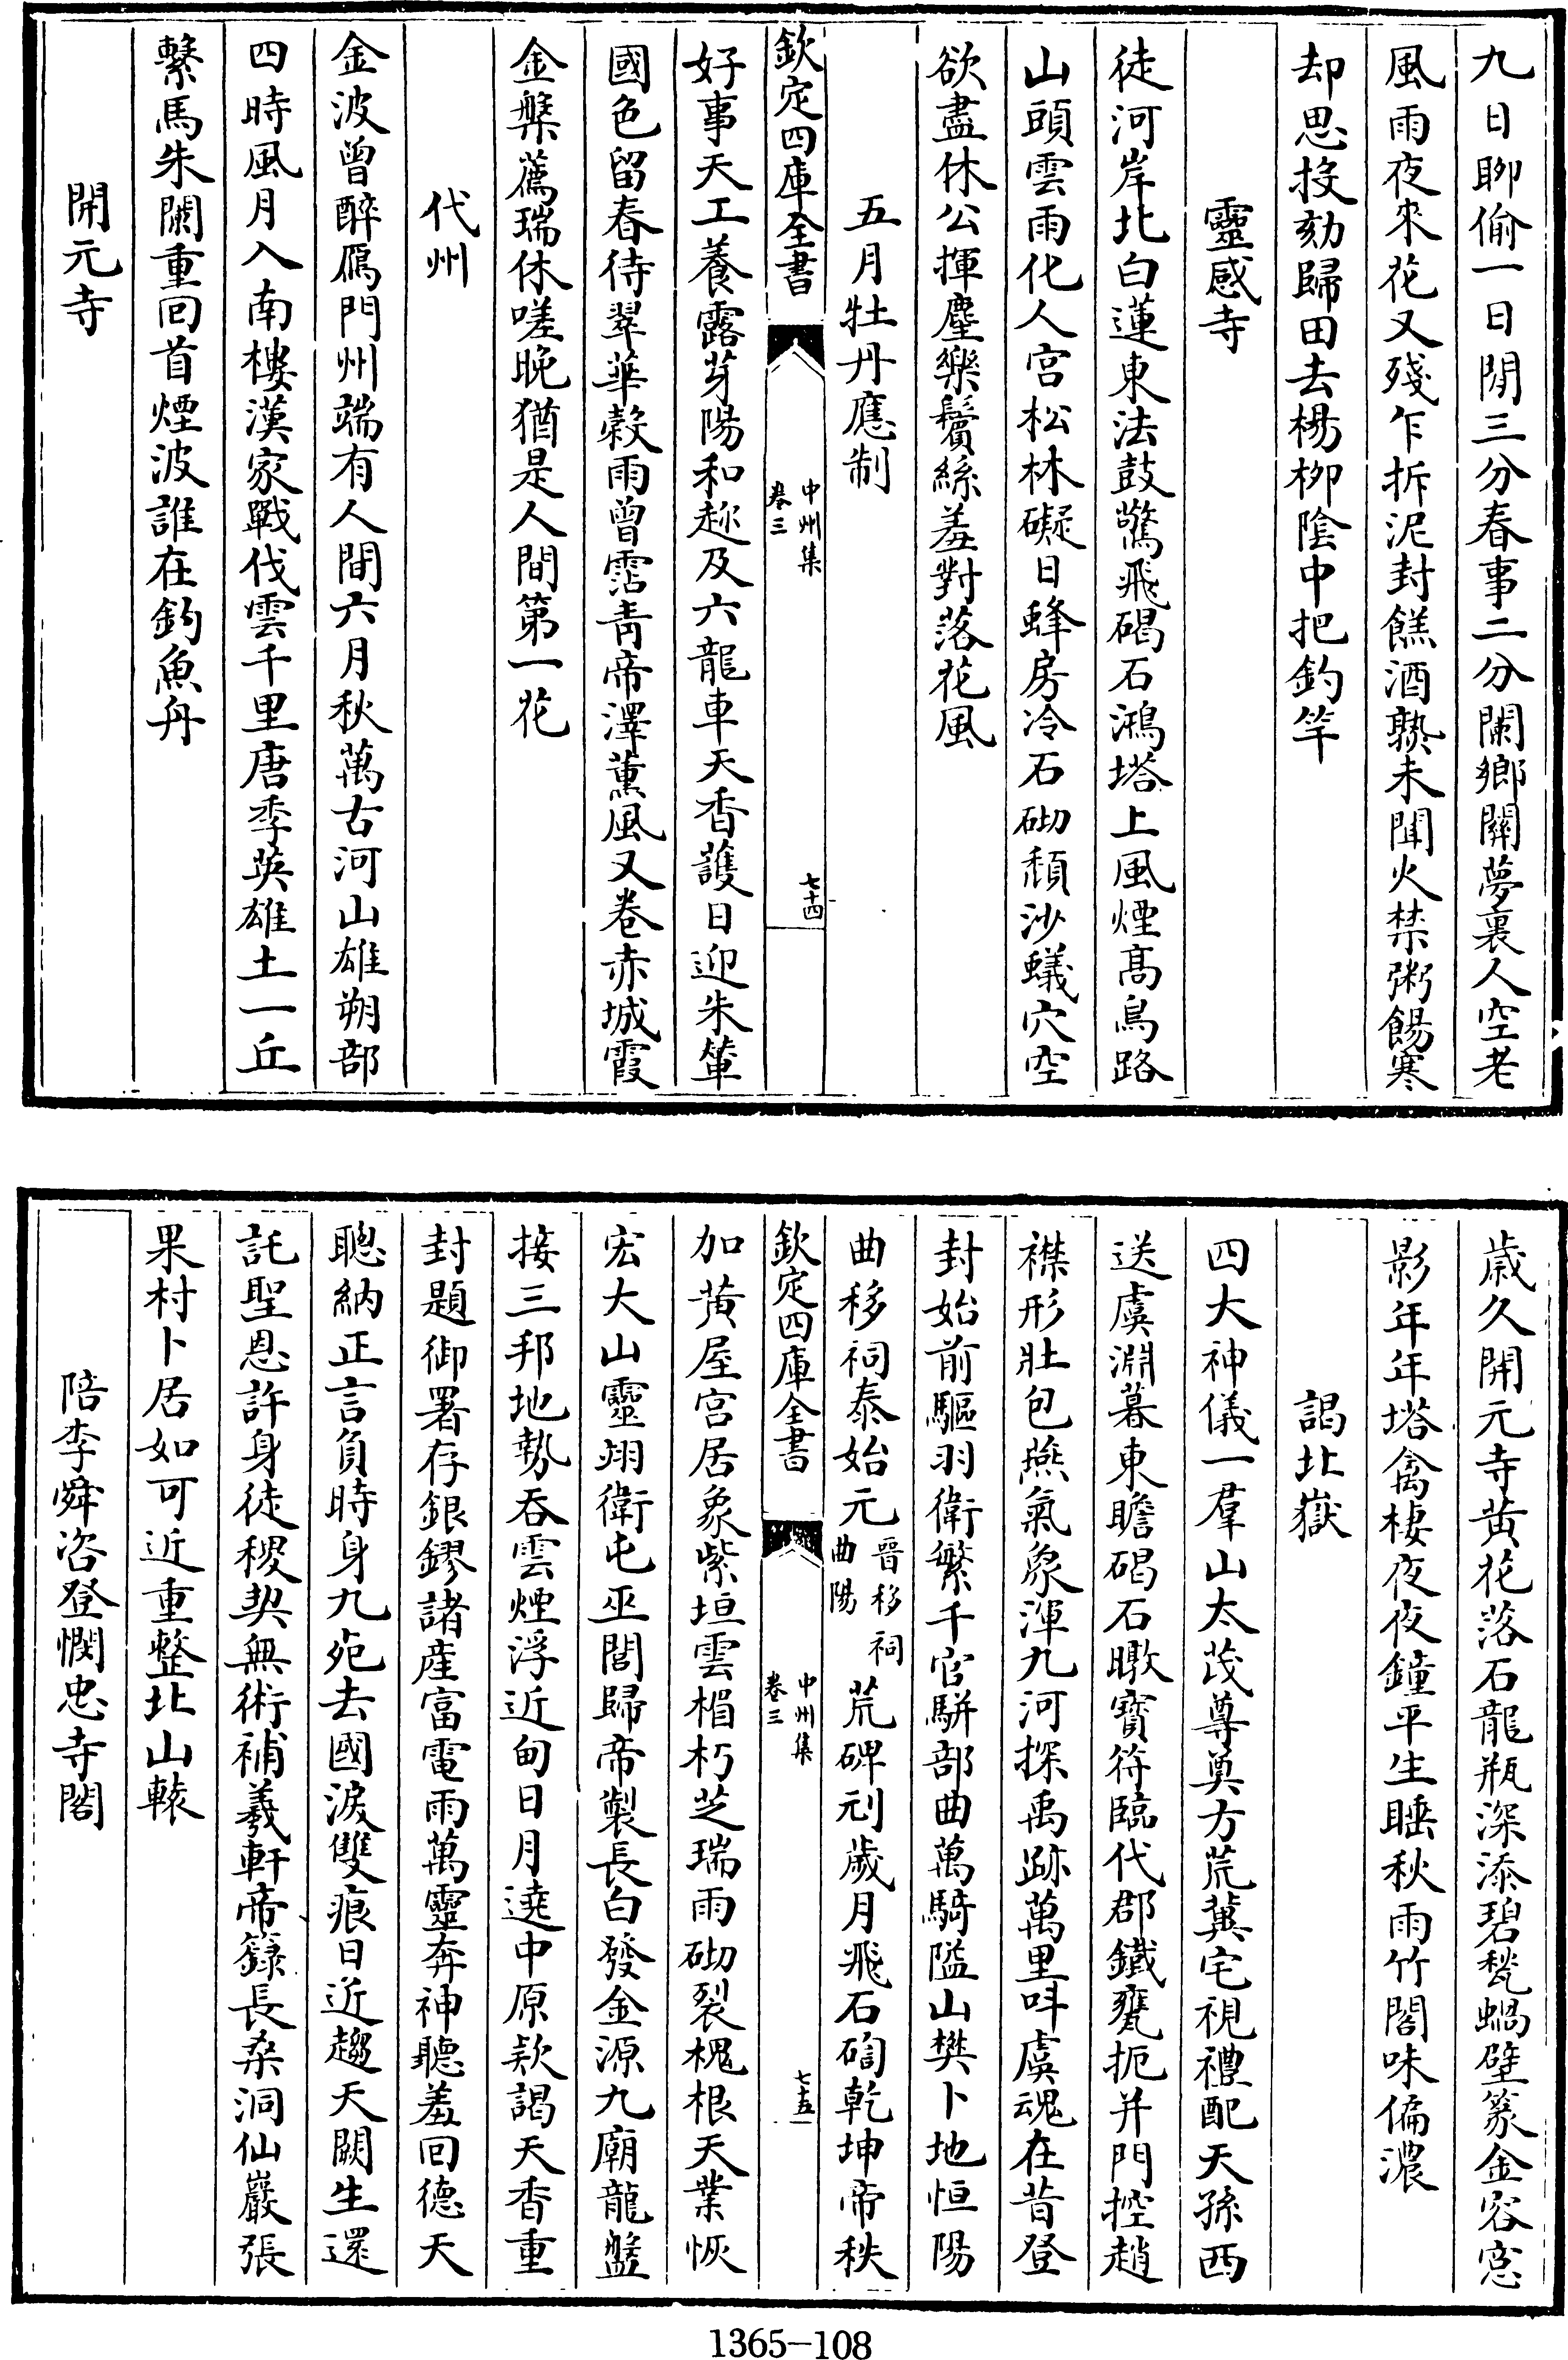 九日聊偷一日閒三分春事二分闌鄉關夢裏人空老
風雨夜來花又殘乍拆泥封餻酒熟未聞火禁粥餳寒
却思投劾歸田去楊栁陰中把釣竿
靈感寺
徒河岸北白蓮東法鼓驚飛碣石鴻塔上風煙髙鳥路
山頭雲雨化人宮松林礙日蜂房冷石砌頽沙蟻穴空
欲盡休公揮麈樂鬢絲羞對落花風
五月牡丹應制
欽定四庫全書
中州集
卷三
七十四
好事天工養露芽陽和趂及六龍車天香護日迎朱輦
國色留春待翠華榖雨曾霑青帝澤薰風又卷赤城霞
金槃薦瑞休嗟晚猶是人間第一花
代州
金波曾醉鴈門州端有人間六月秋萬古河山雄朔部
四時風月入南樓漢家戰伐雲千里唐季英雄土一丘
繫馬朱闌重回首煙波誰在釣魚舟
開元寺
歲久開元寺黄花落石龍瓶深添碧甃蝸壁篆金容窓
影年年塔禽棲夜夜鐘平生睡秋雨竹閣味偏濃
謁北嶽
四大神儀一羣山太茂尊奠方荒冀宅視禮配天孫西
送虞淵暮東瞻碣石暾寳符臨代郡鐵甕扼并門控趙
襟形壯包燕氣象渾九河探禹跡萬里呌虞魂在昔登
封始前驅羽衛繁千官駢部曲萬騎隘山樊卜地恒陽
曲移祠泰始元晉移祠曲陽荒碑刓歲月飛石䧟乾坤帝秩
欽定四庫全書
中州集
卷三
七十五
加黄屋宮居象紫垣雲楣朽芝瑞雨砌裂槐根天業恢
宏大山靈翊衛屯巫閭歸帝製長白發金源九廟龍盤
接三邦地勢吞雲煙浮近甸日月遶中原款謁天香重
封題御署存銀鏐諸産富電雨萬靈奔神聽羞回德天
聰納正言負時身九死去國淚雙痕日近趨天闕生還
託聖恩許身徒稷契無術補羲軒帝籙長桑洞仙巖張
果村卜居如可近重整北山轅
陪李舜咨登憫忠寺閣
1365-108